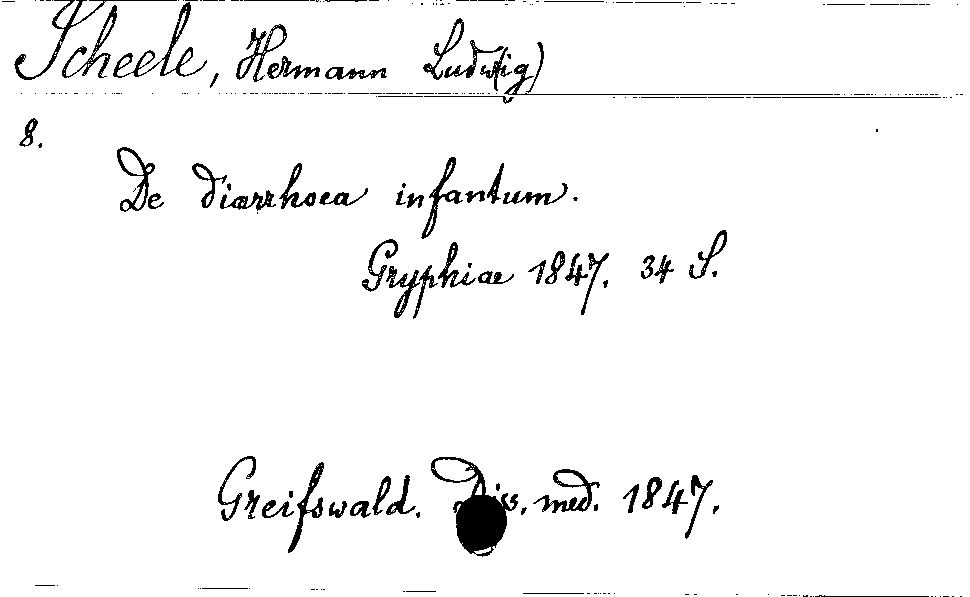 Scheele, Hermann Ludw(ig)
8.
De diarrhoea infantum.
Gryphiae 1847. 34 S.
Greifswald. Diss. med. 1847.